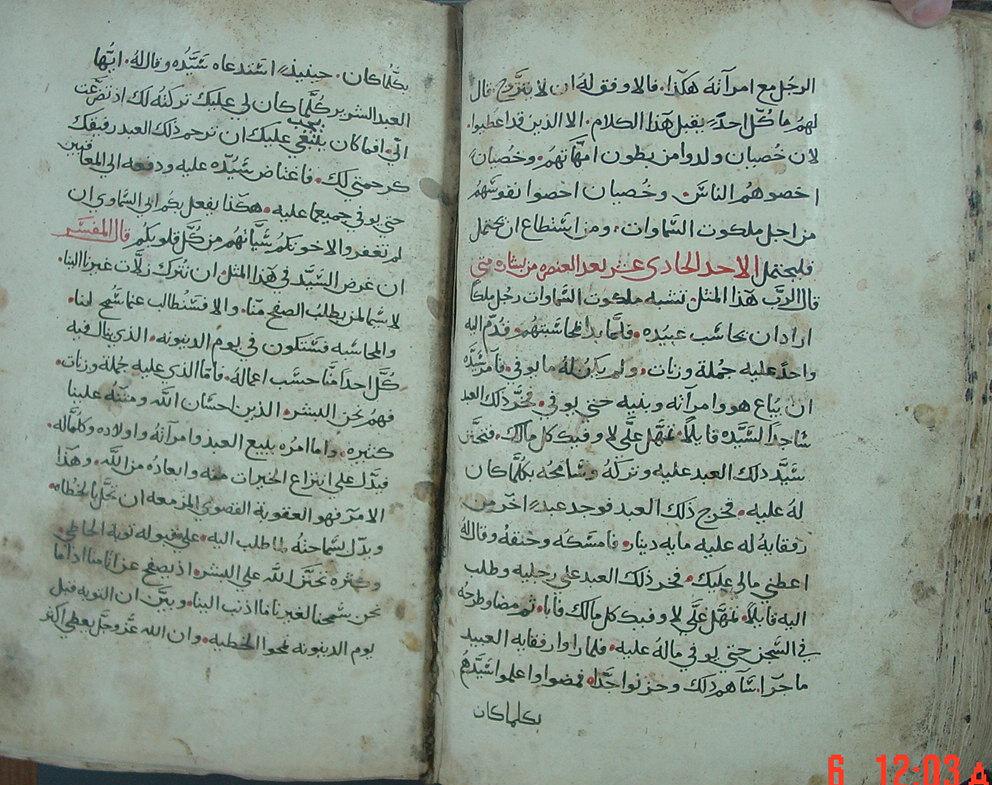 الرجل مع امرآته هكذا. فالاوفق له ان لا يتزوج قال
لهم ما كل احدٍ يقبل هذا الكلام. الا الذين قد اعطيوا.
لان خصيان ولدوا من بطون امهاتهم. وخصيان
اخصوهم الناس. وخصيان اخصوا نفوسهم
من اجل ملكوت السماوات. ومن استطاع ان يحتمل
فليحتمل الاحد الحادى عشر بعد العنصره من بشارة متي
قال الرب هذا المثل. تشبه ملكوت السماوات رجل ملكا
اراد ان يحاسب عبيده. فلما بدا لمحاسبتهم. فقدم اليه
واحد عليه جملة وزنات. ولم يكن له ما يوفي. فامر سيده
ان يباع هو وامرآته وبنيه حتي يوفي. فخر ذلك العبد
ساجدا لسيده قايلا. تمهل علي لاوفيك كل مالك. فتحنن
سيد ذلك العبد عليه وتركه وسامحه بكلما كان
له عليه. فخرج ذلك العبد فوجد عبداً اخر من
رفقايه له عليه مايه دينار. فامسكه وخنقه وقال له
اعطني مالي عليك. فخر ذلك العبد علي رجليه وطلب
اليه قايلا. تمهل علي لاوفيك كل مالك فابا. ثم مضا وطرحه
في السجن حتي يوفي ماله عليه. فلما راوا رفقايه العبيد
ما جرا. ساهم ذلك وحزنوا جدا. فمضوا واعلموا سيدهم
بكلما كان
بكلما كان. حينيذٍ استدعاه سيده وقال له. ايها
العبد الشرير كلما كان لي عليك تركته لك اذ تضرعت
الي. افما كان ينبغي عليك ان ترحم ذلك العبد رفيقك
يجب
كرحمتي لك. فاغتاض سيده عليه ودفعه الي المعاقبين
حتي يوفي جميع ما عليه. هكذا يفعل بكم ابي السماوي ان
لم تغفروا لاخوتكم سياتهم من كل قلوبكم قال المفسر
ان غرض السيد في هذا المثل. ان نترك زلات غيرنا الينا.
لا سيما لمن يطلب الصفح منا. والا فسنطالب عما سمح لنا.
والمحاسبه فستكون في يوم الدينونه. الذي ينال فيه
كل احد منا حسب اعماله. فاما الذي عليه جملة وزنات.
فهم نحن البشر. الذين احسان الله ومننه علينا
كثيره. واما امره ببيع العبد وامرآته واولاده وكلماله.
فيدل علي انتزاع الخيرات منه وابعاده من الله. وهذا
الامر فهو العقوبة القصوي المزمعه ان تحل بالخطاه.
ويدل بسماحته لما طلب اليه. علي قبوله توبة الخاطي.
وكثره تحنن الله علي البشر. اذ يصفح عن اثامنا اذا ما
نحن سمحنا لغيرنا ما اذنب الينا. ويبين ان التوبه قبل
يوم الدينونه تمحوا الخطيه. وان الله عز وجل يعطي اكثر